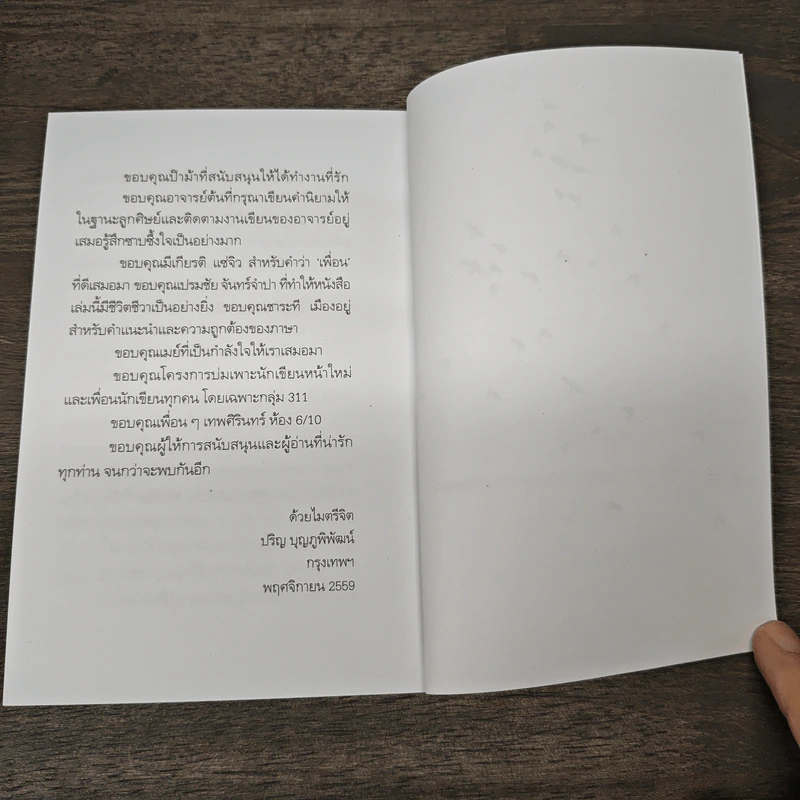 ขอบคุณป๊าม้าที่สนับสนุนให้ได้ทำงานที่รัก
ขอบคุณอาจารย์ต้นที่กรุณาเขียนคำนิยามให้
ในฐานะลูกศิษย์และติดตามงานเขียนของอาจารย์อยู่
เสมอรู้สึกซาบซึ้งใจเป็นอย่างมาก
ขอบคุณมีเกียรติ แซ่จิว สำหรับคำว่า ‘เพื่อน’
ที่ดีเสมอมา ขอบคุณเปรมชัย จันทร์จำปา ที่ทำให้หนังสือ
เล่มนี้มีชีวิตชีวาเป็นอย่างยิ่ง ขอบคุณซาระที เมืองอยู่
สำหรับคำแนะนำและความถูกต้องของภาษา
ขอบคุณเมย์ที่เป็นกำลังใจให้เราเสมอมา
ขอบคุณโครงการบ่มเพาะนักเขียนหน้าใหม่
และเพื่อนนักเขียนทุกคน โดยเฉพาะกลุ่ม 311
ขอบคุณเพื่อน ๆ เทพศิรินทร์ ห้อง 6/10
ขอบคุณผู้ให้การสนับสนุนและผู้อ่านที่น่ารัก
ทุกท่าน จนกว่าจะพบกันอีก
ด้วยไมตรีจิต
ปริญ บุญภูพิพัฒน์
กรุงเทพฯ
พฤศจิกายน 2559